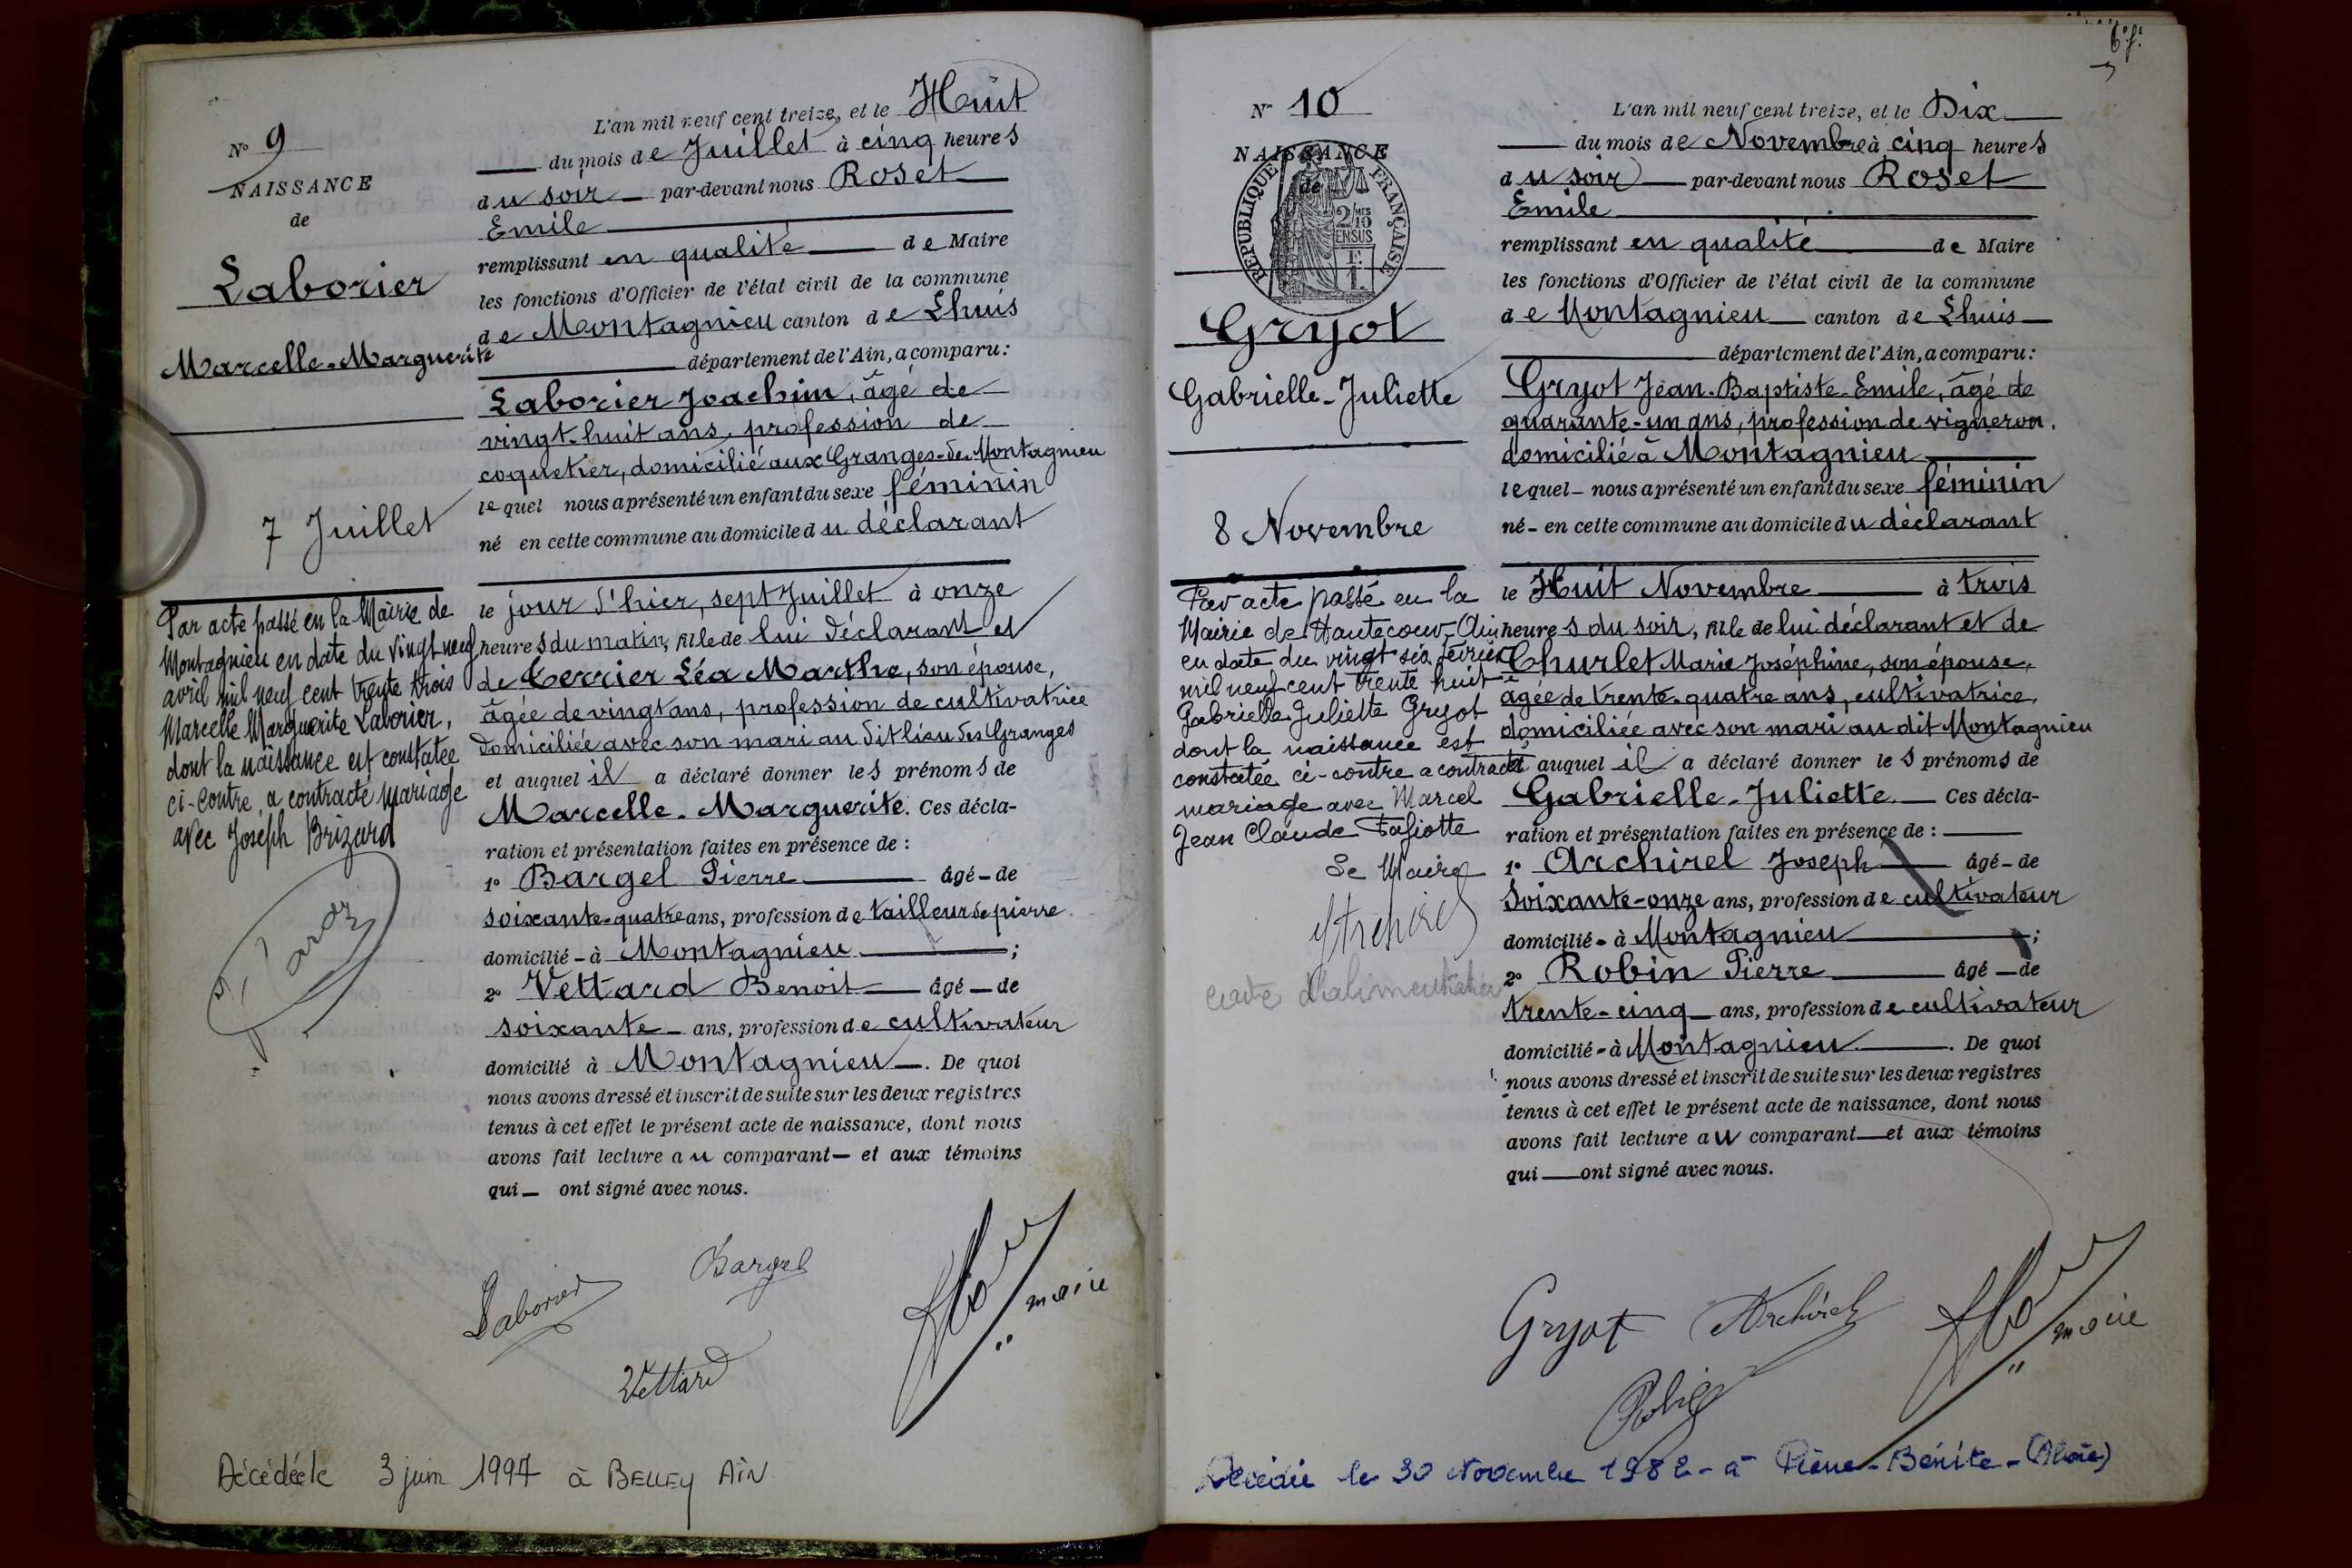 N° 9
NAISSANCE
de
Laborier
Marcelle-Marguerite
7 Juillet
Par acte passé en la Mairie de
Montagnieu en date du vingt neuf
avril mil neuf cent trente trois
Marcelle Marguerite Laborier,
dont la naissance est constatée
ci-contre, a contracté mariage
avec Joséph Brizard
L'an mil neuf cent treize, et le Huit
du mois de Juillet à cinq heures
du soir par-devant nous Roset
Emile
remplissant en qualité de Maire
les fonctions d'Officier de l'état civil de la commune
de Montagnieu canton de Lhuis
département de l'Ain, a comparu:
Laborier Joachim, âgé de
vingt-huit ans, profession de
coquetier, domicilié aux Granges-de-Montagnieu
lequel nous a présenté un enfant du sexe féminin
né en cette commune au domicile du déclarant
le jour d'hier, sept Juillet à onze
heures du matin, fille de lui déclarant et
de Cerrier Léa Marthe, son épouse,
âgée de vingt ans, profession de cultivatrice
domiciliée avec son mari au dit lieu des Granges
et auquel il a déclaré donner les prénoms de
Marcelle-Marguerite. Ces décla-
ration et présentation faites en présence de :
1° Bargel Pierre âgé - de
soixante-quatre ans, profession de tailleur de pierre
domicilié - à Montagnieu ;
2° Vettard Benoit âgé - de
soixante - ans, profession de cultivateur
domicilié à Montagnieu. De quoi
nous avons dressé et inscrit de suite sur les deux registres
tenus à cet effet le présent acte de naissance, dont nous
avons fait lecture au comparant - et aux témoins
qui - ont signé avec nous.
Laborier
Bargel
Vettard
maire
Décédée le 3 juin 1997 à BELLEY AIN
N° 10
NAISSANCE
de
RÉPUBLIQUE FRANÇAISE
2/10 MES
EN SUS
Gryot
Gabrielle-Juliette
8 Novembre
Par acte passé en la
Mairie de Hautecour-Ain
en date du vingt six février
mil neuf cent trente huit
Gabrielle Juliette Gryot
dont la naissance est
constatée ci-contre a contracté
mariage avec Marcel
Jean Claude Fafiotte
Le Maire
Archirel
carte d'alimentation
L'an mil neuf cent treize, et le Dix
du mois de Novembre à cinq heures
du soir par-devant nous Roset
Emile
remplissant en qualité de Maire
les fonctions d'Officier de l'état civil de la commune
de Montagnieu canton de Lhuis
département de l'Ain, a comparu:
Gryot Jean-Baptiste-Emile, âgé de
quarante-un ans, profession de vigneron,
domicilié à Montagnieu
lequel - nous a présenté un enfant du sexe féminin
né - en cette commune au domicile du déclarant
le Huit Novembre à trois
heures du soir, fille de lui déclarant et de
Churlet Marie Joséphine, son épouse,
âgée de trente-quatre ans, cultivatrice,
domiciliée avec son mari au dit Montagnieu
et auquel il a déclaré donner les prénoms de
Gabrielle-Juliette. Ces décla-
ration et présentation faites en présence de :
1° Archirel Joseph âgé - de
soixante-onze ans, profession de cultivateur
domicilié - à Montagnieu ;
2° Robin Pierre âgé - de
trente-cinq ans, profession de cultivateur
domicilié - à Montagnieu. De quoi
nous avons dressé et inscrit de suite sur les deux registres
tenus à cet effet le présent acte de naissance, dont nous
avons fait lecture au comparant - et aux témoins
qui - ont signé avec nous.
Gryot
Archirel
Robin
maire
Décédée le 30 Novembre 1982 - à Pierre-Bénite - (Rhône)